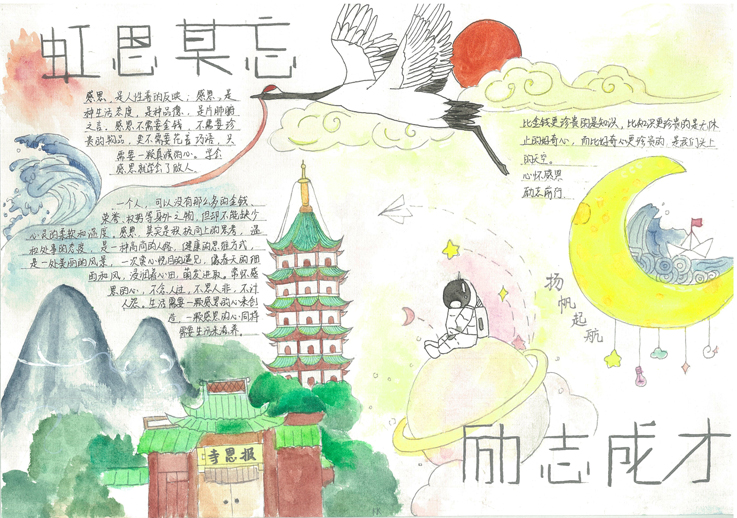 虹思莫忘
感恩，是人性善的反映；感恩，是
种生活态度，是种品德，是片肺腑
之言。感恩不需要金钱，不需要珍
贵的物品，更不需要花言巧语，只
需要一颗真诚的心。学会
感恩就学会了做人。
一个人，可以没有那么多的金钱
荣誉、权势等身外之物，但却不能缺少
心灵的柔软和温度。感恩，其实是积极向上的思考，
和处事的态度，是一种高尚的人格，健康的思维方式，
是一处美丽的风景，一次赏心悦目的遇见，
和风，浸润着心田，萌发进取。常怀感
恩的心，不念人过，不思人非，不计
人怨。生活需要一颗感恩的心来创
造，一颗感恩的心同样
需要生活来滋养。
比金钱更珍贵的是知识，比知识更珍贵的是无休
止的好奇心，而比好奇心更珍贵的，是我们头上
的天空。
心怀感恩
励志前行
扬帆起航
寺恩报
励志成才